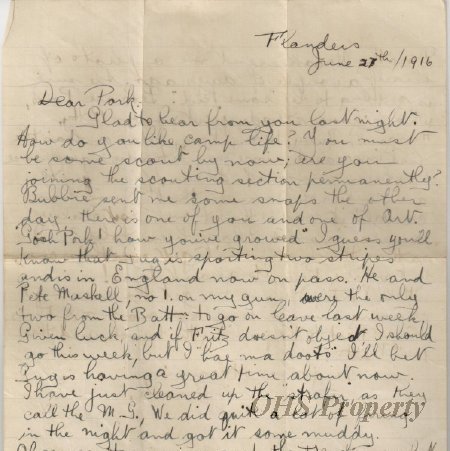 Flanders
June 27th/1916
Dear Pork:
Glad to hear from you last night.
How do you like camp life? You must
be some scout by now; are you
joining the scouting section permanently?
Bubbie sent me some snaps the other
day there is one of you and one of Art.
Gosh Pork! how you've growed" I guess you'll
know that Tug is sporting two stripes
and is in England now on pass. He and
Pete Maskell, no 1. on my gun, were the only
two from the Batt: to go on leave last week
Given luck, and if Fritz doesn't object I should
go this week, but I hae ma doots I'll bet
Tug is having a great time about now
I have just cleaned up the as they
call the M.G. We did quite a lot of firing
in the night and got it some muddy.
OHS Property